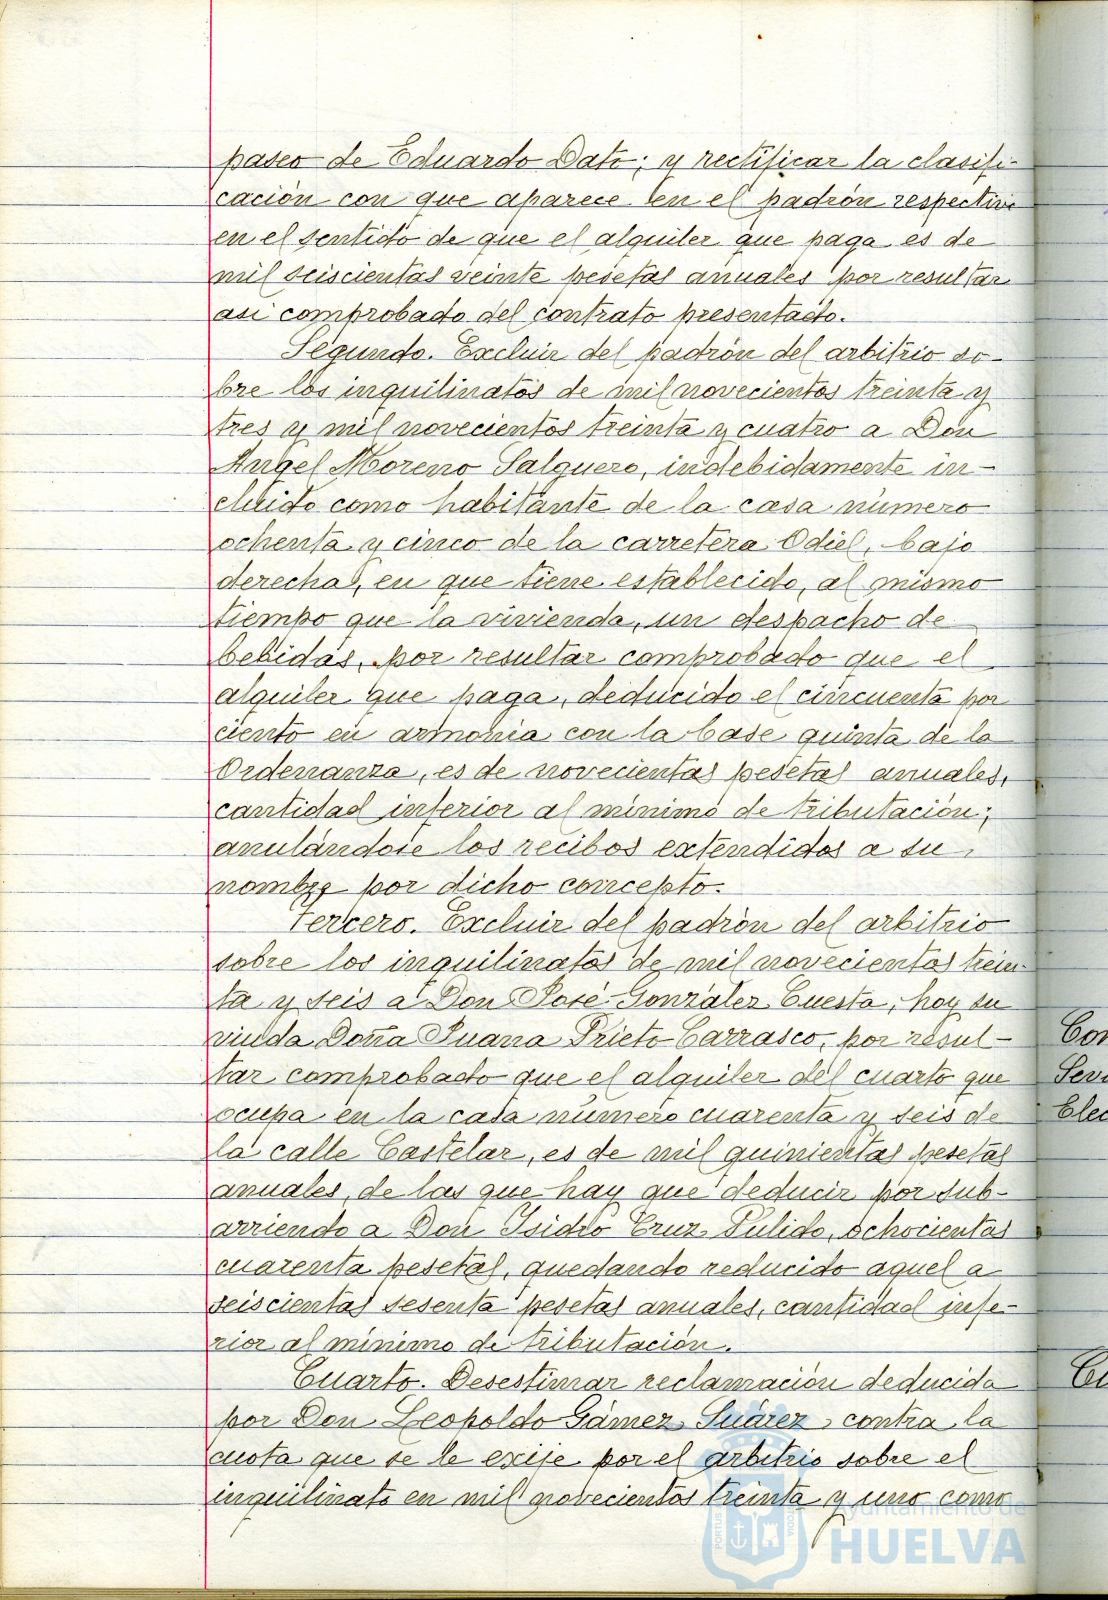 paseo de Eduardo Dato; y rectificar la clasifi-
cación con que aparece en el padrón respectivo
en el sentido de que el alquiler que paga es de
mil seiscientas veinte pesetas anuales por resultar
asi comprobado del contrato presentado.
Segundo. Excluir del padrón del arbitrio so-
bre los inquilinatos de mil novecientos treinta y
tres y mil novecientos treinta y cuatro a Don
Angel Moreno Salguero, indebidamente in-
cluido como habitante de la casa número
ochenta y cinco de la carretera Odiel, bajo
derecha, en que tiene establecido, al mismo
tiempo que la vivienda, un despacho de
bebidas, por resultar comprobado que el
alquiler que paga, deducido el cincuenta por
ciento en armonia con la base quinta de la
Ordenanza, es de novecientas pesetas anuales,
cantidad inferior al mínimo de tributación;
anulándose los recibos extendidos a su
nombre por dicho concepto.
Tercero. Excluir del padrón del arbitrio
sobre los inquilinatos de mil novecientos trein-
ta y seis a Don José González Cuesta, hoy su
viuda Doña Juana Prieto Carrasco, por resul-
tar comprobado que el alquiler del cuarto que
ocupa en la casa número cuarenta y seis de
la calle Castelar, es de mil quinientas pesetas
anuales, de las que hay que deducir por sub-
arriendo a Don Isidro Cruz Pulido, ochocientas
cuarenta pesetas, quedando reducido aquel a
seiscientas sesenta pesetas anuales, cantidad infe-
rior al mínimo de tributación.
Cuarto. Desestimar reclamación deducida
por Don Leopoldo Gámez Suárez contra la
cuota que se le exije por el arbitrio sobre el
inquilinato en mil novecientos treinta y uno como
Con
Sevi
Elec
Cu
Ayuntamiento de
HUELVA